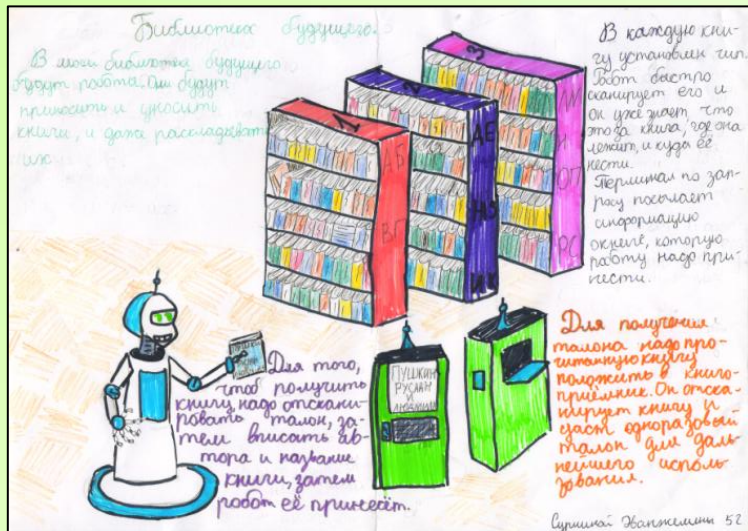 Библиотека будущего.
В моей библиотеке будущего
будут робота. Они будут
приносить и уносить
книги, и даже раскладывать
их
В каждую кни-
гу установлен чип.
Робот быстро
сканирует его и
он уже знает, что
это за книга, где она
лежит, и куда её
нести.
Терминал по зап-
росу посылает
информацию
о книге, которую
роботу надо при-
нести.
1
2
3
АБ
ВГ
ДЕ
ИК
ЛМ
Н
ОП
РС
Для того,
чтоб получить
книгу, надо отскани-
ровать талон, за-
тем вписать ав-
тора и название
книги, затем
робот её принесёт.
ПУШКИН
РУСЛАН
И
ЛЮДМИЛА
Для получения
талона надо про-
читанную книгу
положить в книго-
приёмник. Он отска-
нирует книгу и
даст одноразовый
талон для даль-
нейшего исполь-
зования.